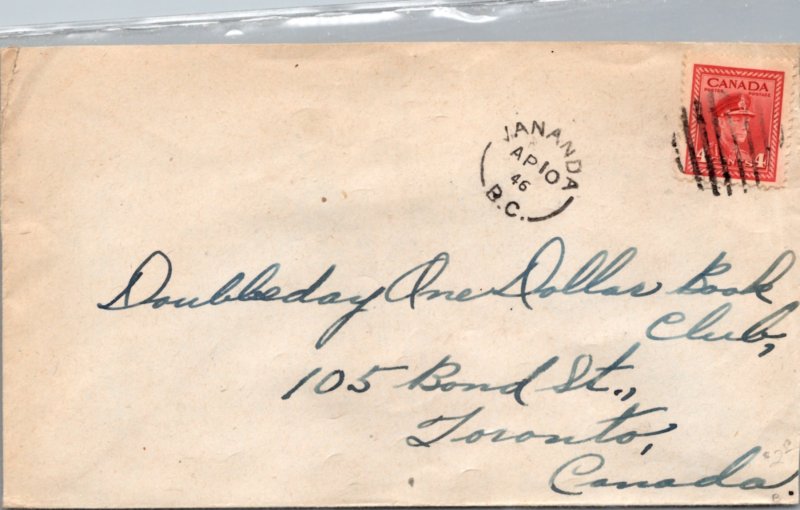 CANADA
POSTES POSTAGE
4 CENTS 4
VANANDA
AP 10
46
B.C.
Doubleday One Dollar Book
Club,
105 Bond St.,
Toronto,
Canada.